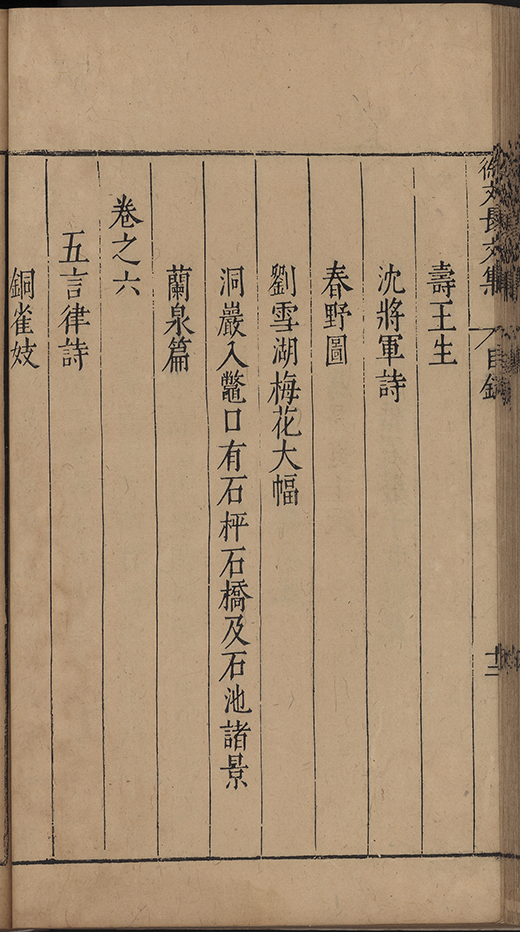 徐文長文集
目錄
十二
壽王生
沈將軍詩
春野圖
劉雪湖梅花大幅
洞巖入鼈口有石枰石橋及石池諸景
蘭泉篇
卷之六
五言律詩
銅雀妓